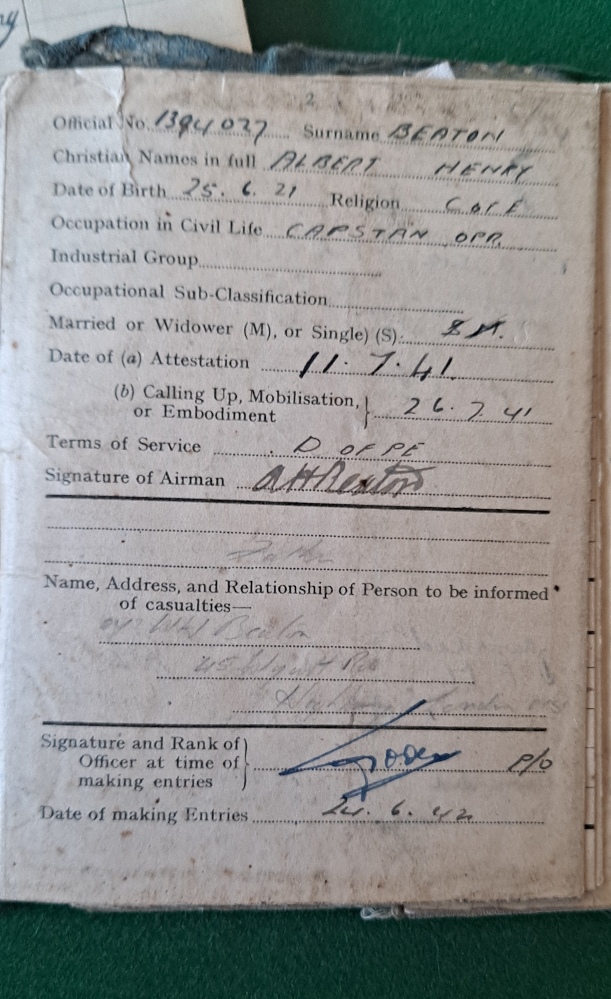 2
Official No. 1394027 Surname BEATON
Christian Names in full ALBERT HENRY
Date of Birth 25. 6. 21 Religion C of E
Occupation in Civil Life CAPSTAN OPR.
Industrial Group
Occupational Sub-Classification
Married or Widower (M), or Single) (S).
Date of (a) Attestation 11. 7. 41.
(b) Calling Up, Mobilisation, or Embodiment } 26. 7. 41
Terms of Service D OF PE
Signature of Airman AHBeaton
Father
Name, Address, and Relationship of Person to be informed
of casualties—
Beaton
45
London
Signature and Rank of
Officer at time of
making entries } P/O
Date of making Entries 24. 6. 42